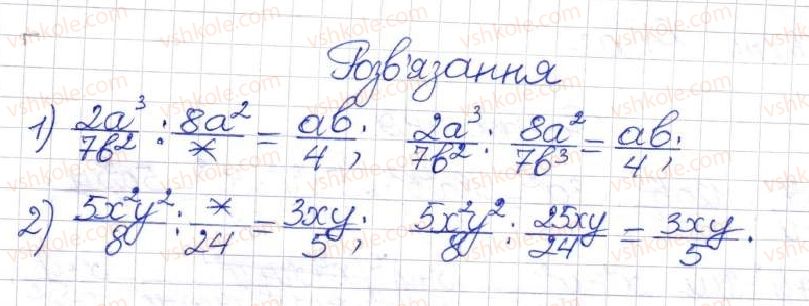 Розв'язання
1) \frac{2a^3}{7b^2} : \frac{8a^2}{*} = \frac{ab}{4}; \frac{2a^3}{7b^2} : \frac{8a^2}{7b^3} = \frac{ab}{4};
2) \frac{5x^2y^2}{8} : \frac{*}{24} = \frac{3xy}{5}; \frac{5x^2y^2}{8} : \frac{25xy}{24} = \frac{3xy}{5}.